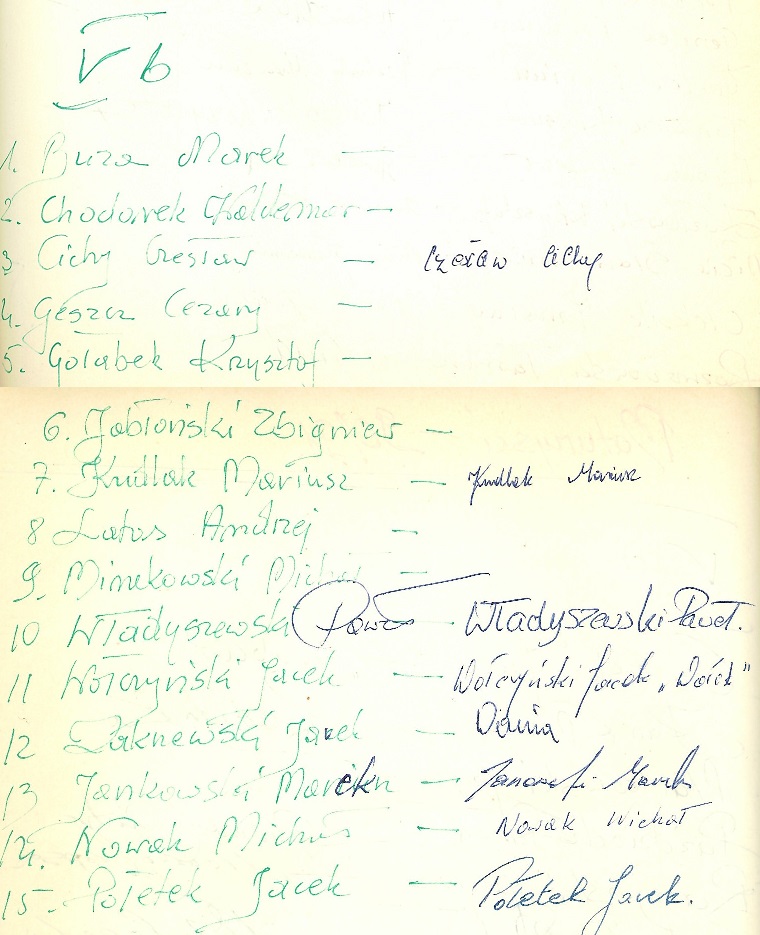 V b
1. Buza Marek —
2. Chodorek Waldemar —
3. Cichy Czesław — Czesław Cichy
4. Gęszcz Cezary —
5. Gołąbek Krzysztof —
6. Jabłoński Zbigniew —
7. Kudlak Mariusz — Kudlak Mariusz
8 Latos Andrzej —
9. Michał —
10 Władyszewski Paweł — Władyszewski Paweł.
11 Wołczyński Jacek — Wołczyński Jacek „Wołek"
12 Jacek —
13 Jankowski Marek — Marek
14. Nowak Michał — Nowak Michał
15. Połetek Jacek — Połetek Jacek.